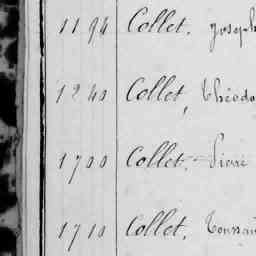 1194 Collet, Joseph
1240 Collet, Théodo
1700 Collet, Pierre
1710 Collet, Toussai